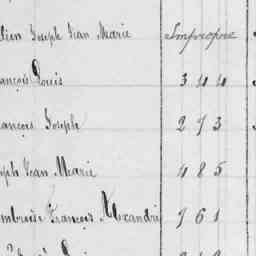 lien Joseph Jean Marie Impropre
rançois Louis 3 4 4
rançois Joseph 2 7 3
seph Jean Marie 4 8 5
mbroise François Alexandre 9 6 1